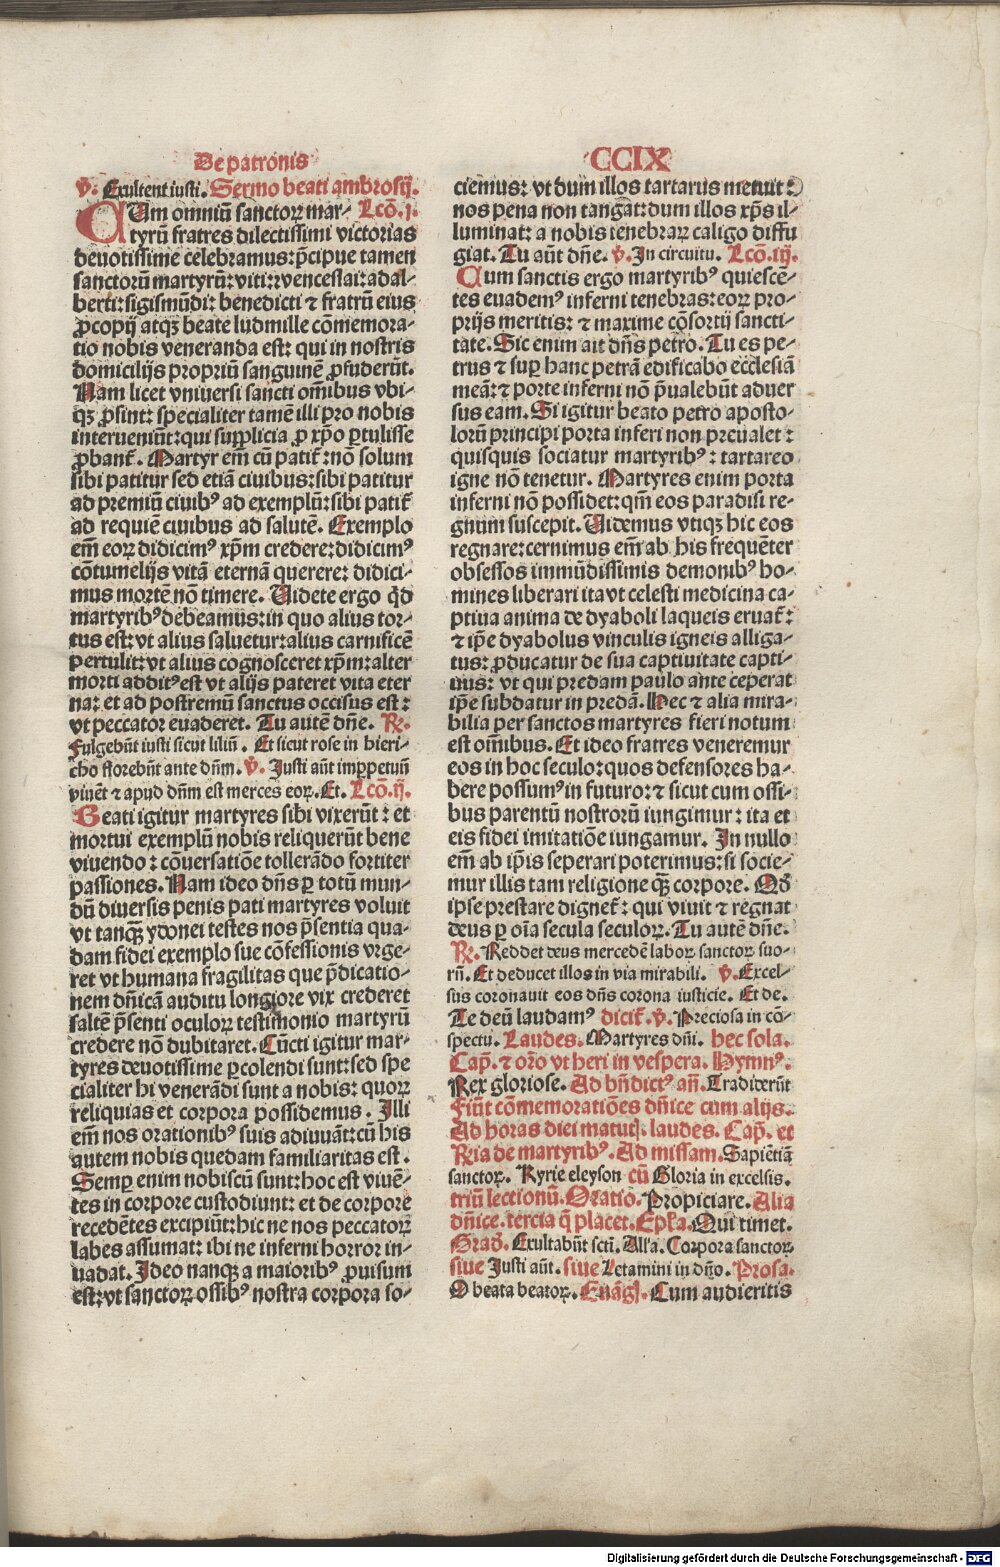 De patronis
CCIX
℣. Exultent iusti. Sermo beati ambrosij.
CUm omniũ sanctoꝝ mar- Lcõ.j.
tyrũ fratres dilectissimi victorias
deuotissime celebramus: p̃cipue tamen
sanctorũ martyrũ: viti: vvenceslai: adal-
berti: sigismũdi: benedicti ⁊ fratrũ eius
ꝓcopij atqꝫ beate ludmille cõmemora-
tio nobis veneranda est: qui in nostris
domicilijs propriũ sanguinẽ ꝓfuderũt.
Nam licet vniuersi sancti om̃ibus vbi-
qꝫ ꝓsint: specialiter tamẽ illi pro nobis
interueniũt: qui supplicia ꝓ xp̃o ꝑtulisse
ꝓbant̃. Martyr em̃ cũ patit̃: nõ solum
sibi patitur sed etiã ciuibus: sibi patitur
ad premiũ ciuibꝰ ad exemplũ: sibi patit̃
ad requiẽ ciuibus ad salutẽ. Exemplo
em̃ eoꝝ didicimꝰ xp̃m credere: didicimꝰ
cõtumelijs vitã eternã querere: didici-
mus mortẽ nõ timere. Uidete ergo qd̃
martyribꝰ debeamus: in quo alius tor-
tus est: vt alius saluetur: alius carnificẽ
pertulit: vt alius cognosceret xp̃m: alter
morti additꝰ est vt alijs pateret vita eter
na: et ad postremũ sanctus occisus est:
vt peccator euaderet. Tu autẽ dñe. ℟.
Fulgebũt iusti sicut liliũ. Et sicut rose in hieri-
cho florebũt ante dñm. ℣. Justi aũt imꝑpetuũ
viuẽt ⁊ apud dñm est merces eoꝝ. Et. Lcõ.ij.
Beati igitur martyres sibi vixerũt: et
mortui exemplũ nobis reliquerũt bene
viuendo: cõuersatiõe tollerãdo fortiter
passiones. Nam ideo dñs ꝑ totũ mun-
dũ diuersis penis pati martyres voluit
vt tanqꝫ ydonei testes nos p̃sentia qua-
dam fidei exemplo sue cõfessionis vrge-
ret vt humana fragilitas que p̃dicatio-
nem dñicã auditu longiore vix crederet
saltẽ p̃senti oculoꝝ testimonio martyrũ
credere nõ dubitaret. Cũcti igitur mar-
tyres deuotissime ꝑcolendi sunt: sed spe
cialiter hi venerãdi sunt a nobis: quoꝝ
reliquias et corpora possidemus. Illi
em̃ nos orationibꝰ suis adiuuãt: cũ his
autem nobis quedam familiaritas est.
Semꝑ enim nobiscũ sunt: hoc est viuẽ-
tes in corpore custodiunt: et de corpore
recedẽtes excipiũt: hic ne nos peccatoꝝ
labes assumat: ibi ne inferni horror in-
uadat. Ideo nanqꝫ a maioribꝰ ꝓuisum
est: vt sanctoꝝ ossibꝰ nostra corpora so-
ciemus: vt dum illos tartarus metuit:
nos pena non tangat: dum illos xp̃s il-
luminat: a nobis tenebraꝝ caligo diffu
giat. Tu aũt dñe. ℣. In circuitu. Lcõ.iij.
Cum sanctis ergo martyribꝰ quiescẽ-
tes euademꝰ inferni tenebras: eoꝝ pro-
prijs meritis: ⁊ maxime cõsortij sancti-
tate. Sic enim ait dñs petro. Tu es pe-
trus ⁊ suꝑ hanc petrã edificabo ecclesiã
meã: ⁊ porte inferni nõ p̃ualebũt aduer
sus eam. Si igitur beato petro aposto-
lorũ principi porta inferi non preualet:
quisquis sociatur martyribꝰ: tartareo
igne nõ tenetur. Martyres enim porta
inferni nõ possidet: qm̃ eos paradisi re-
gnum suscepit. Uidemus vtiqꝫ hic eos
regnare: cernimus em̃ ab his frequẽter
obsessos immũdissimis demonibꝰ ho-
mines liberari ita vt celesti medicina ca-
ptiua anima de dyaboli laqueis eruat̃:
⁊ ip̃e dyabolus vinculis igneis alliga-
tus: ꝓducatur de sua captiuitate capti-
uus: vt qui predam paulo ante ceperat
ip̃e subdatur in predã. Hec ⁊ alia mira-
bilia per sanctos martyres fieri notum
est om̃ibus. Et ideo fratres veneremur
eos in hoc seculo: quos defensores ha-
bere possumꝰ in futuro: ⁊ sicut cum ossi-
bus parentũ nostrorũ iungimur: ita et
eis fidei imitatiõe iungamur. In nullo
em̃ ab ip̃is seperari poterimus: si socie-
mur illis tam religione qꝫ corpore. Qd̃
ipse prestare dignet̃: qui viuit ⁊ regnat
deus ꝑ oĩa secula seculoꝝ. Tu autẽ dñe.
℟. Reddet deus mercedẽ laboꝝ sanctoꝝ suo-
rũ. Et deducet illos in via mirabili. ℣. Excel-
sus coronauit eos dñs corona iusticie. Et de.
Te deũ laudamꝰ dicit̃. ℣. Preciosa in cõ-
spectu. Laudes. Martyres dñi. hec sola.
Cap̃. ⁊ orõ vt heri in vespera. Hymnꝰ.
Rex gloriose. Ad bñdictꝰ añ. Tradiderũt
Fiũt cõmemoratiões dñice cum alijs.
Ad horas diei matuĩ. laudes. Cap̃. et
R̃ia de martyribꝰ. Ad missam. Sapiẽtiã
sanctoꝝ. Kyrie eleyson cũ Gloria in excelsis.
triũ lectionũ. Oratio. Propiciare. Alia
dñice. tercia q̃ placet. Ep̃la. Qui timet.
Grad̃. Exultabũt scti. All'a. Corpora sanctoꝝ
siue Justi aũt. siue Letamini in dño. Prosa.
O beata beatoꝝ. Euãgl̃. Cum audieritis
Digitalisierung gefördert durch die Deutsche Forschungsgemeinschaft - DFG